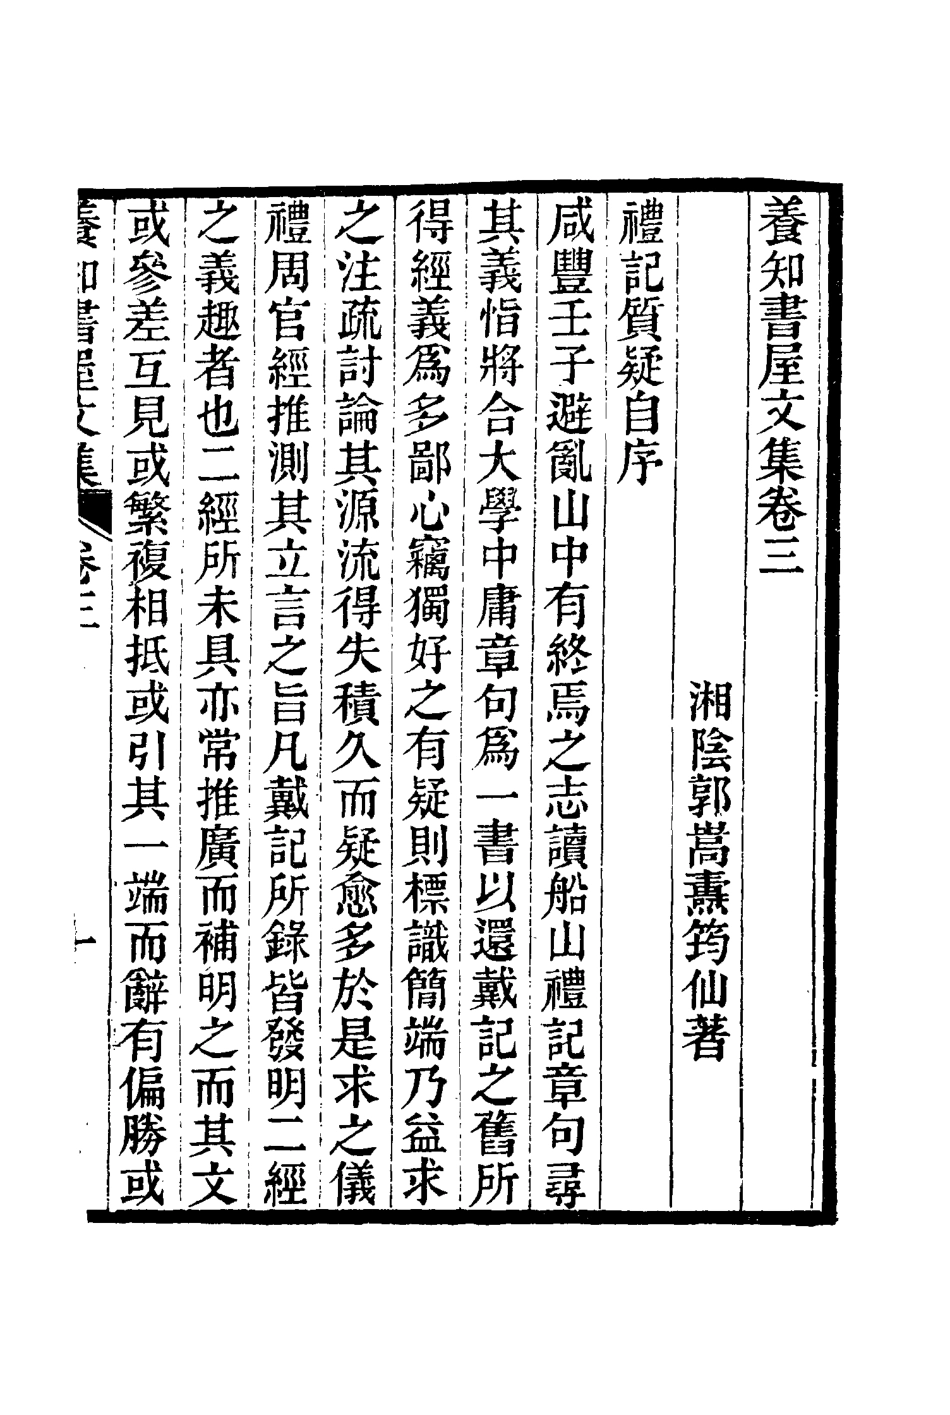 養知書屋文集卷三
湘陰郭嵩燾筠仙著
禮記質疑自序
咸豐壬子避亂山中有終焉之志讀船山禮記章句尋
其義恉將合大學中庸章句爲一書以還戴記之舊所
得經義爲多鄙心竊獨好之有疑則標識簡端乃益求
之注疏討論其源流得失積久而疑愈多於是求之儀
禮周官經推測其立言之旨凡戴記所錄皆發明二經
之義趣者也二經所未具亦常推廣而補明之而其文
或參差互見或繁複相抵或引其一端而辭有偏勝或
養知書屋文集 卷三 一